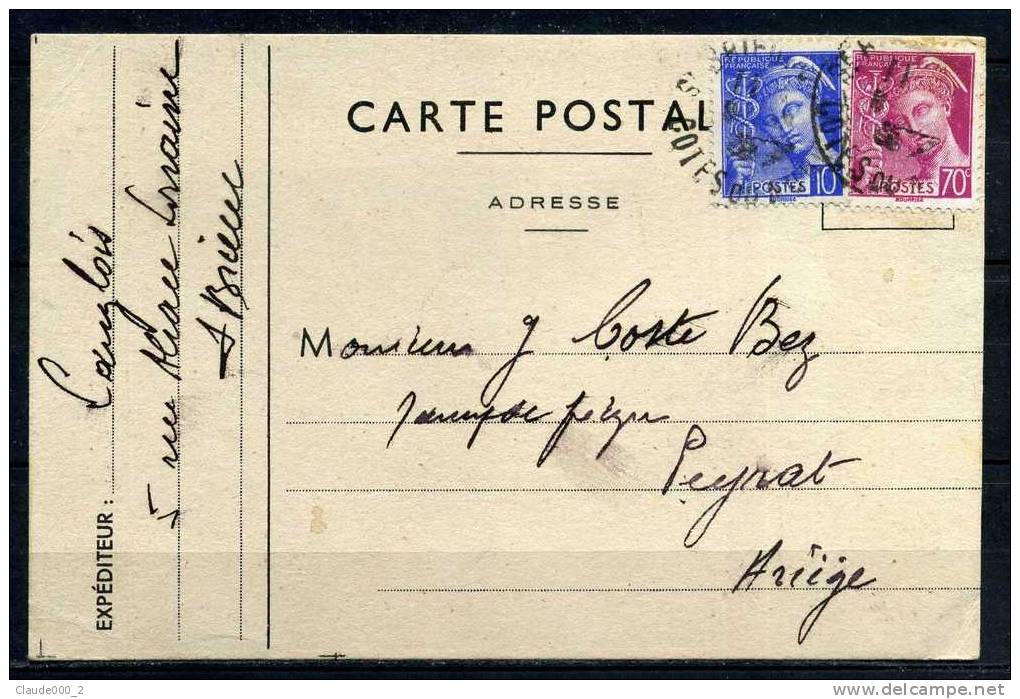 CARTE POSTAL
ADRESSE
REPUBLIQUE FRANÇAISE
POSTES 10
REPUBLIQUE FRANÇAISE
POSTES 70c
COTES DU
Monsieur J Coste Bez
peigne
Peyrat
Ariège
EXPÉDITEUR :
Langlois
rue Lorraine
St Brieuc
Claude000_2
delcampe.net